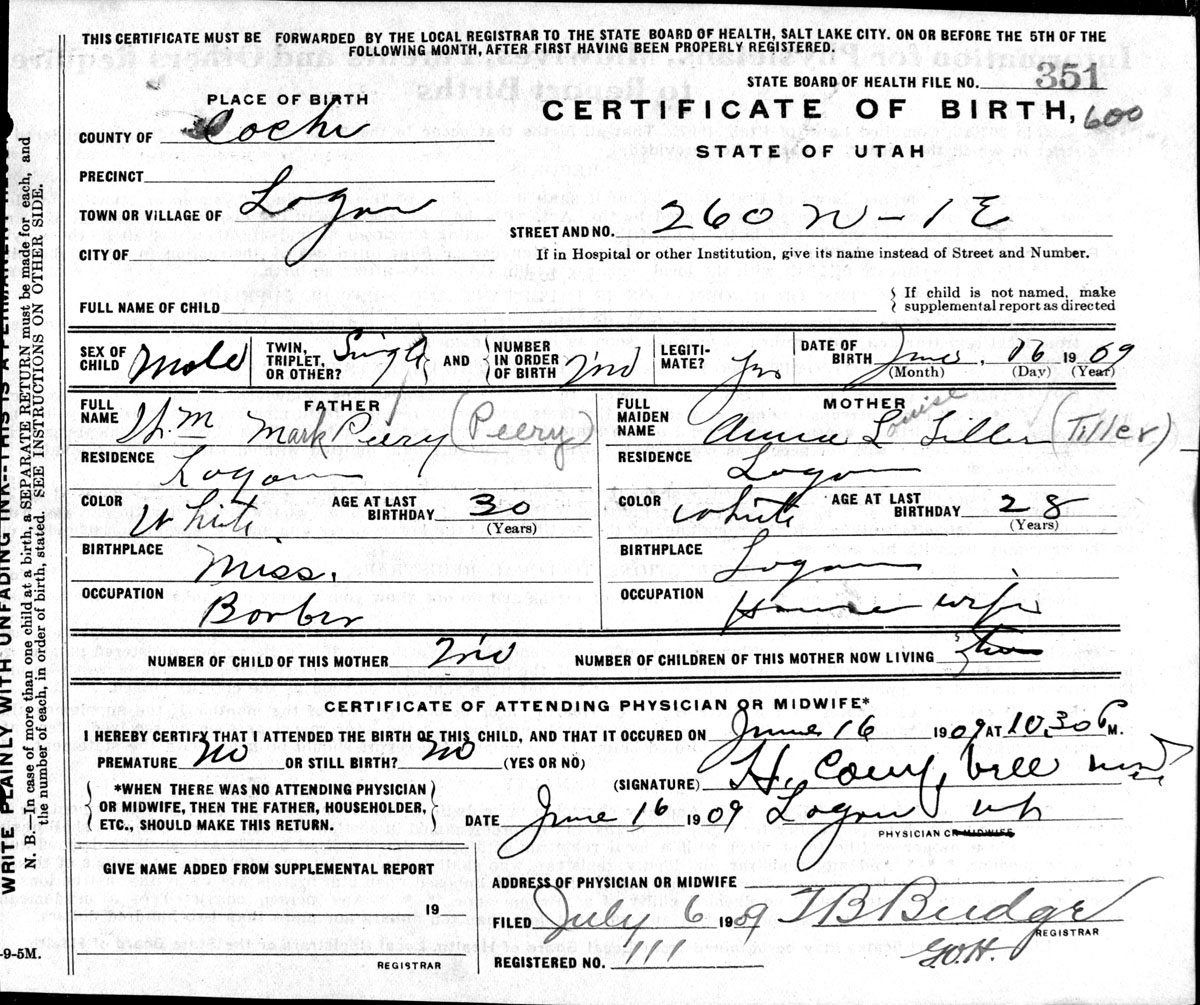 THIS CERTIFICATE MUST BE FORWARDED BY THE LOCAL REGISTRAR TO THE STATE BOARD OF HEALTH, SALT LAKE CITY. ON OR BEFORE THE 5TH OF THE
FOLLOWING MONTH, AFTER FIRST HAVING BEEN PROPERLY REGISTERED.
STATE BOARD OF HEALTH FILE NO. 351
PLACE OF BIRTH
CERTIFICATE OF BIRTH, 600
COUNTY OF Cache
STATE OF UTAH
PRECINCT
TOWN OR VILLAGE OF Logan
STREET AND NO. 260 N - 1 E
CITY OF
If in Hospital or other Institution, give its name instead of Street and Number.
FULL NAME OF CHILD
If child is not named, make
supplemental report as directed
SEX OF CHILD Male
TWIN, TRIPLET, OR OTHER? Single
AND
NUMBER IN ORDER OF BIRTH 2nd
LEGITI-MATE? Yes
DATE OF BIRTH June 16 1909
(Month) (Day) (Year)
FATHER
FULL NAME Mark Peery (Peery)
RESIDENCE Logan
COLOR White
AGE AT LAST BIRTHDAY 30
(Years)
BIRTHPLACE Miss.
OCCUPATION Barber
MOTHER
FULL MAIDEN NAME Annie L Louise Tiller (Tiller)
RESIDENCE Logan
COLOR White
AGE AT LAST BIRTHDAY 28
(Years)
BIRTHPLACE Logan
OCCUPATION House wife
NUMBER OF CHILD OF THIS MOTHER 2nd
NUMBER OF CHILDREN OF THIS MOTHER NOW LIVING two
CERTIFICATE OF ATTENDING PHYSICIAN OR MIDWIFE*
I HEREBY CERTIFY THAT I ATTENDED THE BIRTH OF THIS CHILD, AND THAT IT OCCURED ON June 16 1909 AT 10.30 P M.
PREMATURE No OR STILL BIRTH? No (YES OR NO)
(SIGNATURE) H.
*WHEN THERE WAS NO ATTENDING PHYSICIAN
OR MIDWIFE, THEN THE FATHER, HOUSEHOLDER,
ETC., SHOULD MAKE THIS RETURN.
DATE June 16 1909 Logan Ut
PHYSICIAN OR MIDWIFE
GIVE NAME ADDED FROM SUPPLEMENTAL REPORT
ADDRESS OF PHYSICIAN OR MIDWIFE
19
FILED July 6 1909 T B Budge
REGISTRAR
G.O.H.
REGISTRAR
REGISTERED NO. 111
-9-5M.
WRITE PLAINLY WITH UNFADING INK--THIS IS A PERMANENT RECORD
N. B.—In case of more than one child at a birth, a SEPARATE RETURN must be made for each, and
the number of each, in order of birth, stated. SEE INSTRUCTIONS ON OTHER SIDE.